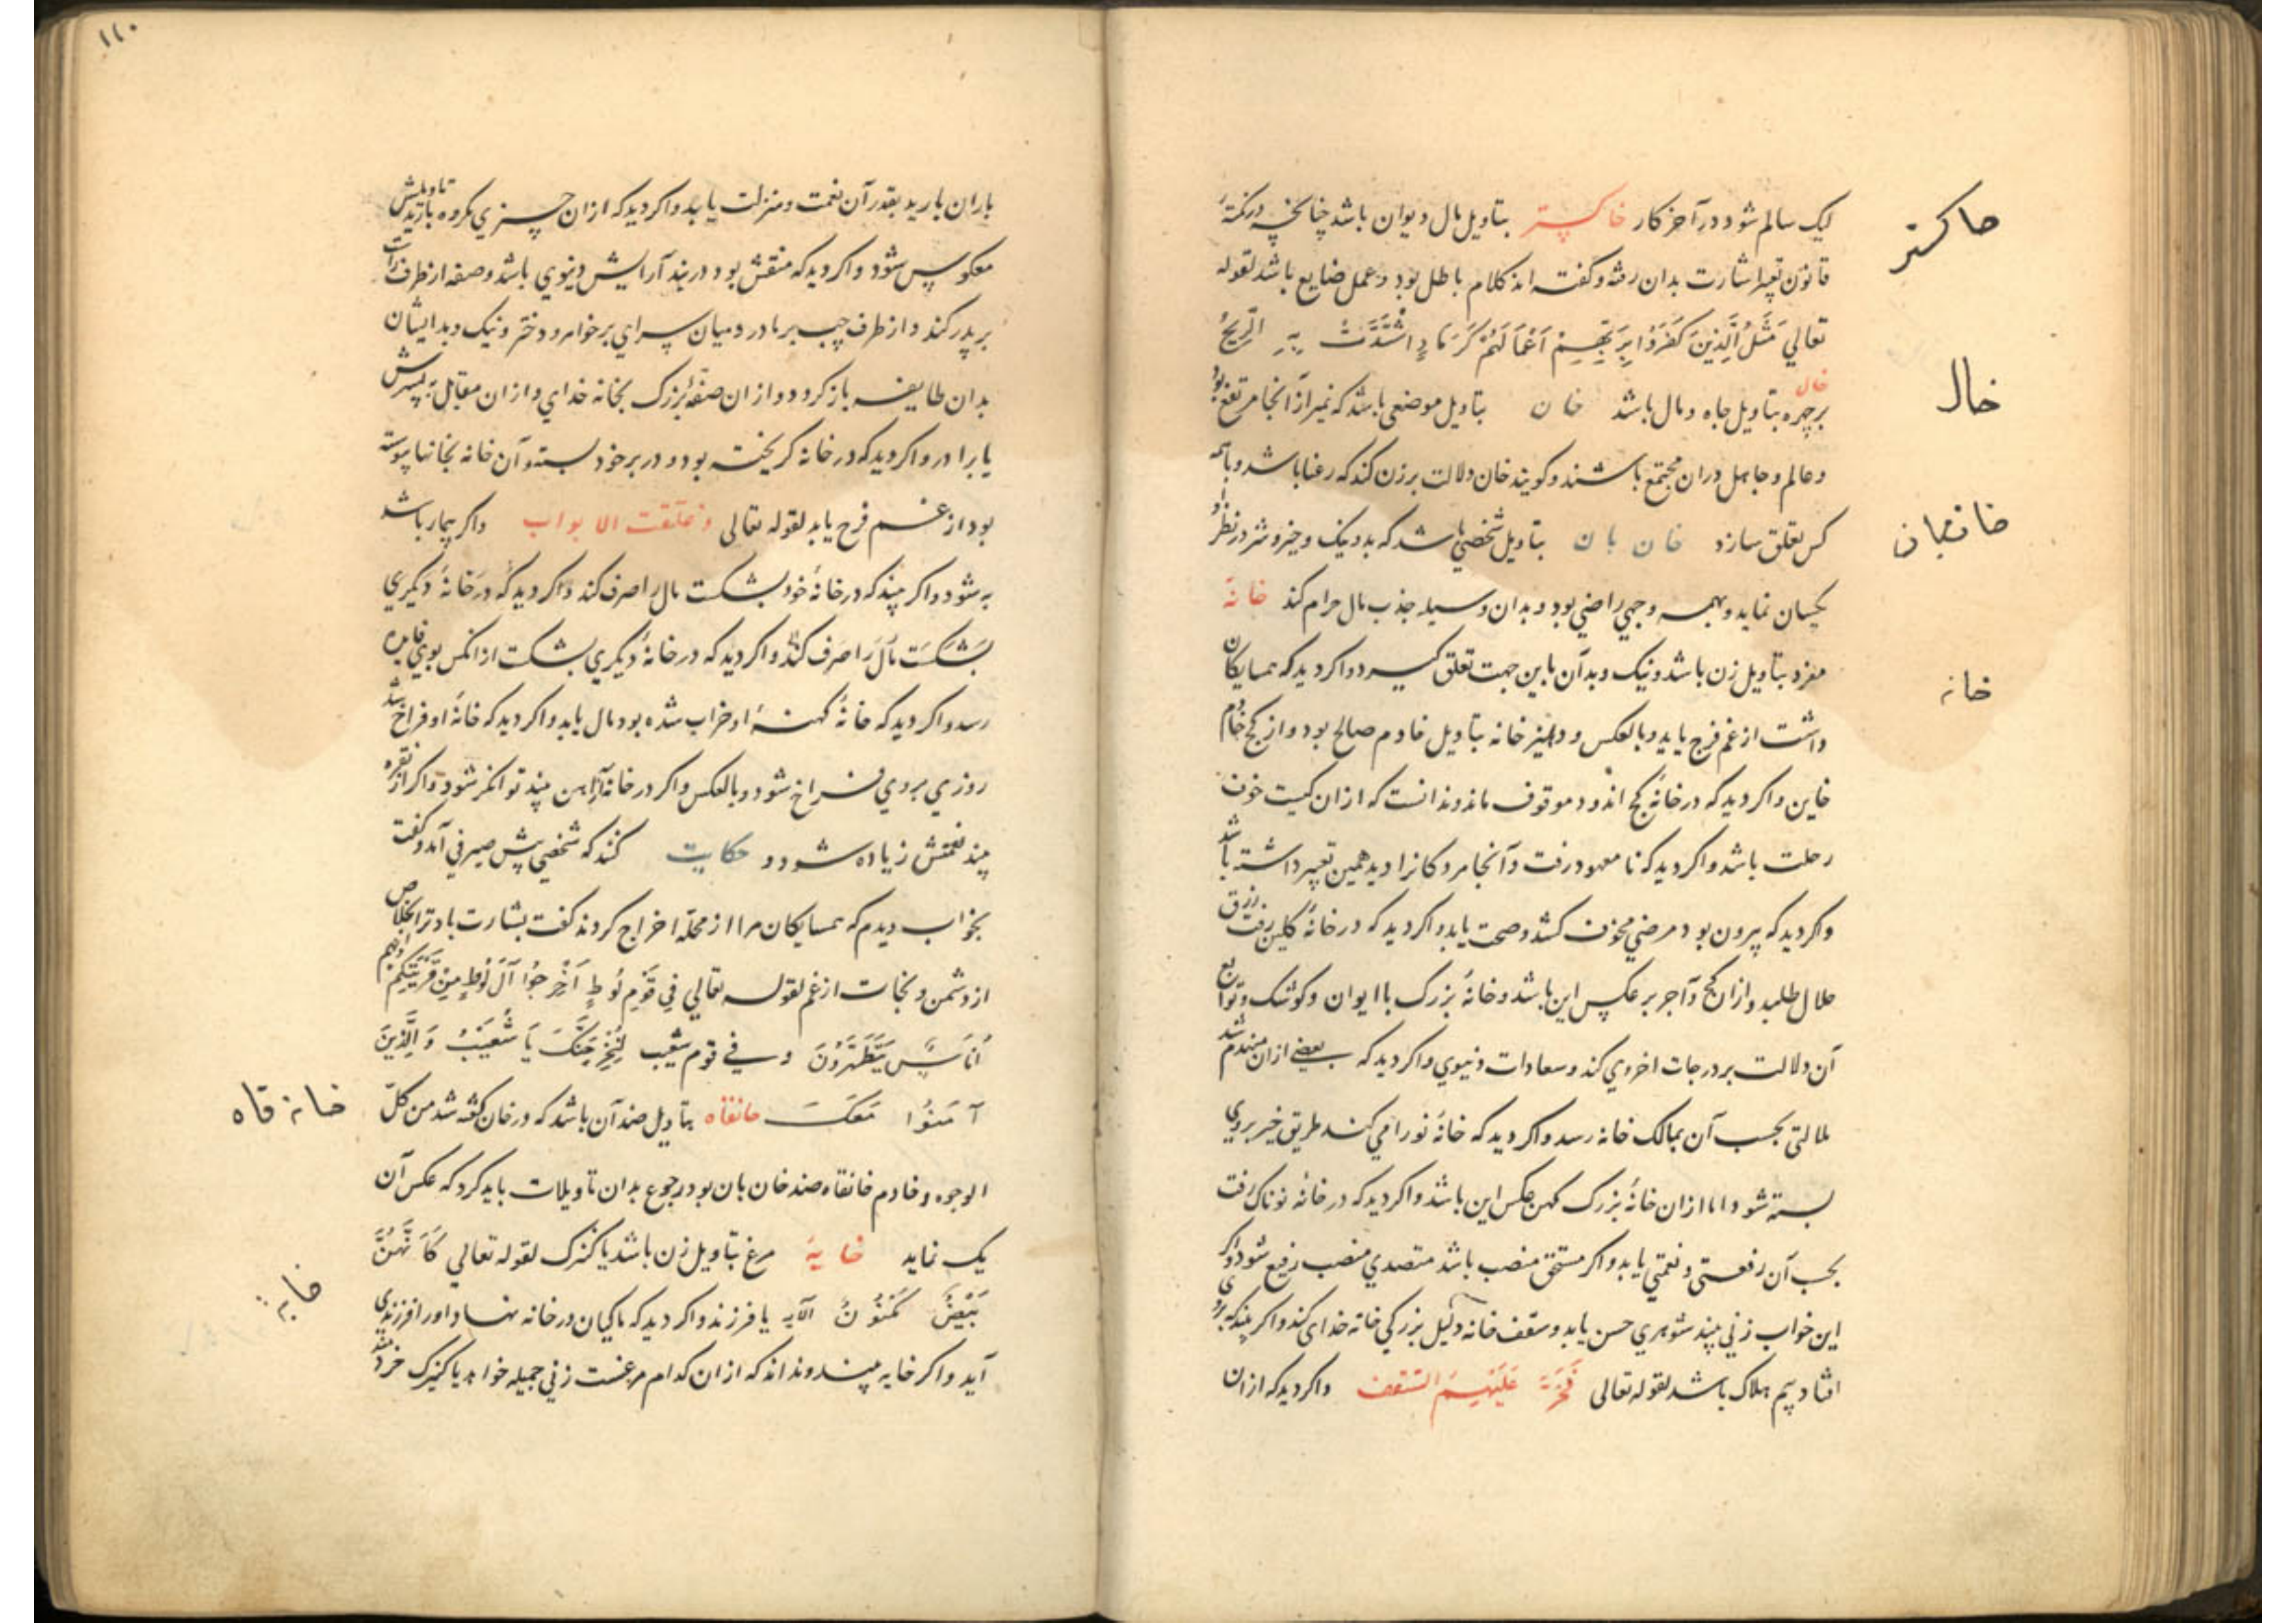 لیک سالم شود در آخر کار خاکستر بتاویل مال دیوان باشد چنانچه در نکته
قانون تعبیر اشارت بدان رفته و گفته اند کلام باطل بود و عمل ضایع باشد لقوله
تعالي مَثَلُ الَّذِينَ كَفَرُوا بِرَبِّهِمْ اَعْمَالُهُمْ كَرَمَادٍ اشْتَدَّتْ بِهِ الرِّيحُ
خال بر چهره بتاویل جاه و مال باشد خان بتاویل موضعی باشد که تمیز از آنجا مرتفع بود
و عالم و جاهل در ان مجتمع باشند و کویند خان دلالت بر زن کند که رعنا باشد و با همه
کس تعلق سازد خان بان بتاویل شخصي باشد که بد و نیک و خیر و شر در نظر او
یکسان نماید و بهمه وجهي راضي بود و بدان وسیله جذب مال حرام کند خانه
مفرد بتاویل زن باشد و نیک و بد آن باین جهت تعلق کیرد و اکر دید که همسایکان
داشت از غم فرج یابد و بالعکس و دهلیز خانه بتاویل خادم صالح بود و از کج خادم
خاین و اکر دید که در خانهٔ کج اندود موقوف ماند و ندانست که از ان کیست خوف
رحلت باشد و اکر دید که نا معهود رفت و آنجا مردکانرا دید همین تعبیر داشته باشد
و اکر دید که بیرون بود مرضي مخوف کشد و صحت یابد و اکر دید که در خانهٔ کلین رفت رزق
حلال طلبد و از ان کج و آجر بر عکس این باشد و خانهٔ بزرک با ایوان و کوشک و توابع
آن دلالت بر درجات اخروي کند و سعادات دنیوي و اکر دید که بعضے از ان منهدم شد
ملالتی بحسب آن بمالک خانه رسد و اکر دید که خانهٔ نو را می کند طریق خیر بروي
بسته شود اما از ان خانهٔ بزرک کهن عکس این باشد و اکر دید که در خانهٔ نوناک رفت
بحسب آن رفعتی و نعمتی یابد و اکر مستحق منصب باشد متصدي منصب رفیع شود و اکر
این خواب زني بیند شوهري حسن یابد و سقف خانه دلیل بزرکي خانه خدای کند و اکر بیند که بروی
افتاد بیم هلاک باشد لقوله تعالی فَخَرَّ عَلَيْهِمُ السَّقْفُ و اکر دید که از ان
خاکستر
خال
خانبان
خانه
۱۱۰
باران بارید بقدر آن نعمت و منزلت یابد و اکر دید که از ان چیزي مکروه بارید تاویلش
معکوس شود و اکر دید که منقش بود در بند آرایش دنیوي باشد و صفه از طرف راست
بر پدر کند و از طرف چپ بر مادر و میان سراي بر خواهر و دختر و نیک و بد ایشان
بدان طایفه باز کردد و از ان صفهٔ بزرک بخانه خداي و از ان مقابل به پسرش
یا برادر و اکر دید که در خانه کریخته بود و در بر خود بسته و آن خانه بخانها پیوسته
بود از غم فرج یابد لقوله تعالی و غلقت الابواب و اکر بیمار باشد
به شود و اکر بیند که در خانهٔ خود بشکست مال را صرف کند و اکر دید که در خانهٔ دیکري
بشکست مال را صرف کند و اکر دید که در خانهٔ دیکري بشکست از انکس بوي فایده
رسد و اکر دید که خانهٔ کهنهٔ او خراب شده بود مال یابد و اکر دید که خانهٔ او فراخ شد
روزي بروي فراخ شود و بالعکس و اکر در خانه آهن بیند توانکر شود و اکر از نقره
بیند نعمتش زیاده شود و حکایت کنند که شخصي پیش صیرفي آمد و کفت
بخواب دیدم که همسایکان مرا از محله اخراج کردند کفت بشارت باد ترا بخلاص
از دشمن و نجات از غم لقوله تعالي فِي قَوْمِ لُوطٍ اَخْرِجُوا آلَ لُوطٍ مِنْ قَرْيَتِكُمْ اِنَّهُمْ
اُنَاسٌ يَتَطَهَّرُونَ و في قوم شعیب لَنُخْرِجَنَّكَ يَا شُعَيْبُ وَالَّذِينَ
آمَنُوا مَعَكَ خانقاه بتاویل ضد آن باشد که در خان کفته شد من کل
الوجوه و خادم خانقاه ضد خان بان بود رجوع بدان تاویلات باید کرد که عکس آن
یک نماید خایهٔ مرغ بتاویل زن باشد یا کنیزک لقوله تعالي كَاَنَّهُنَّ
بَيْضٌ مَكْنُونٌ الآیه یا فرزند و اکر دید که ماکیان در خانه نهاد او را فرزندي
آید و اکر خایه بیند و نداند که از ان کدام مرغست زني جمیله خواهد یا کنیزک خرد
خانه قاه
خایه